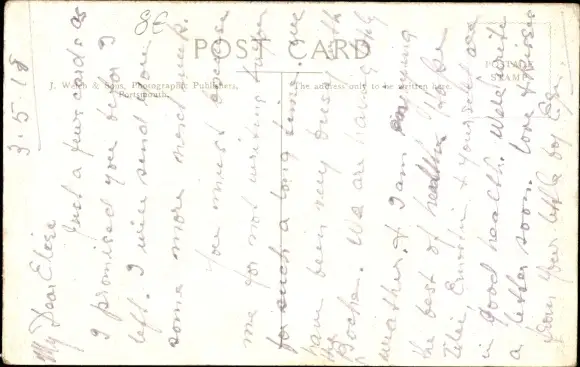 POST CARD
J. Welch & Sons, Photographic Publishers,
Portsmouth.
The address only to be written here.
POSTAGE
STAMP
80
3.5.18
My Dear Elsie
Just a few cards as
I promised you before I
left. I will send you
some more next week.
You must excuse
me for not writing before
for such a long time. we
have been very busy with
the Boche. We are having
weather & I am enjoying
the best of health. Hope
Ernest & yourself are
in good health. Well write
a letter soon. Love & kisses
from your little boy